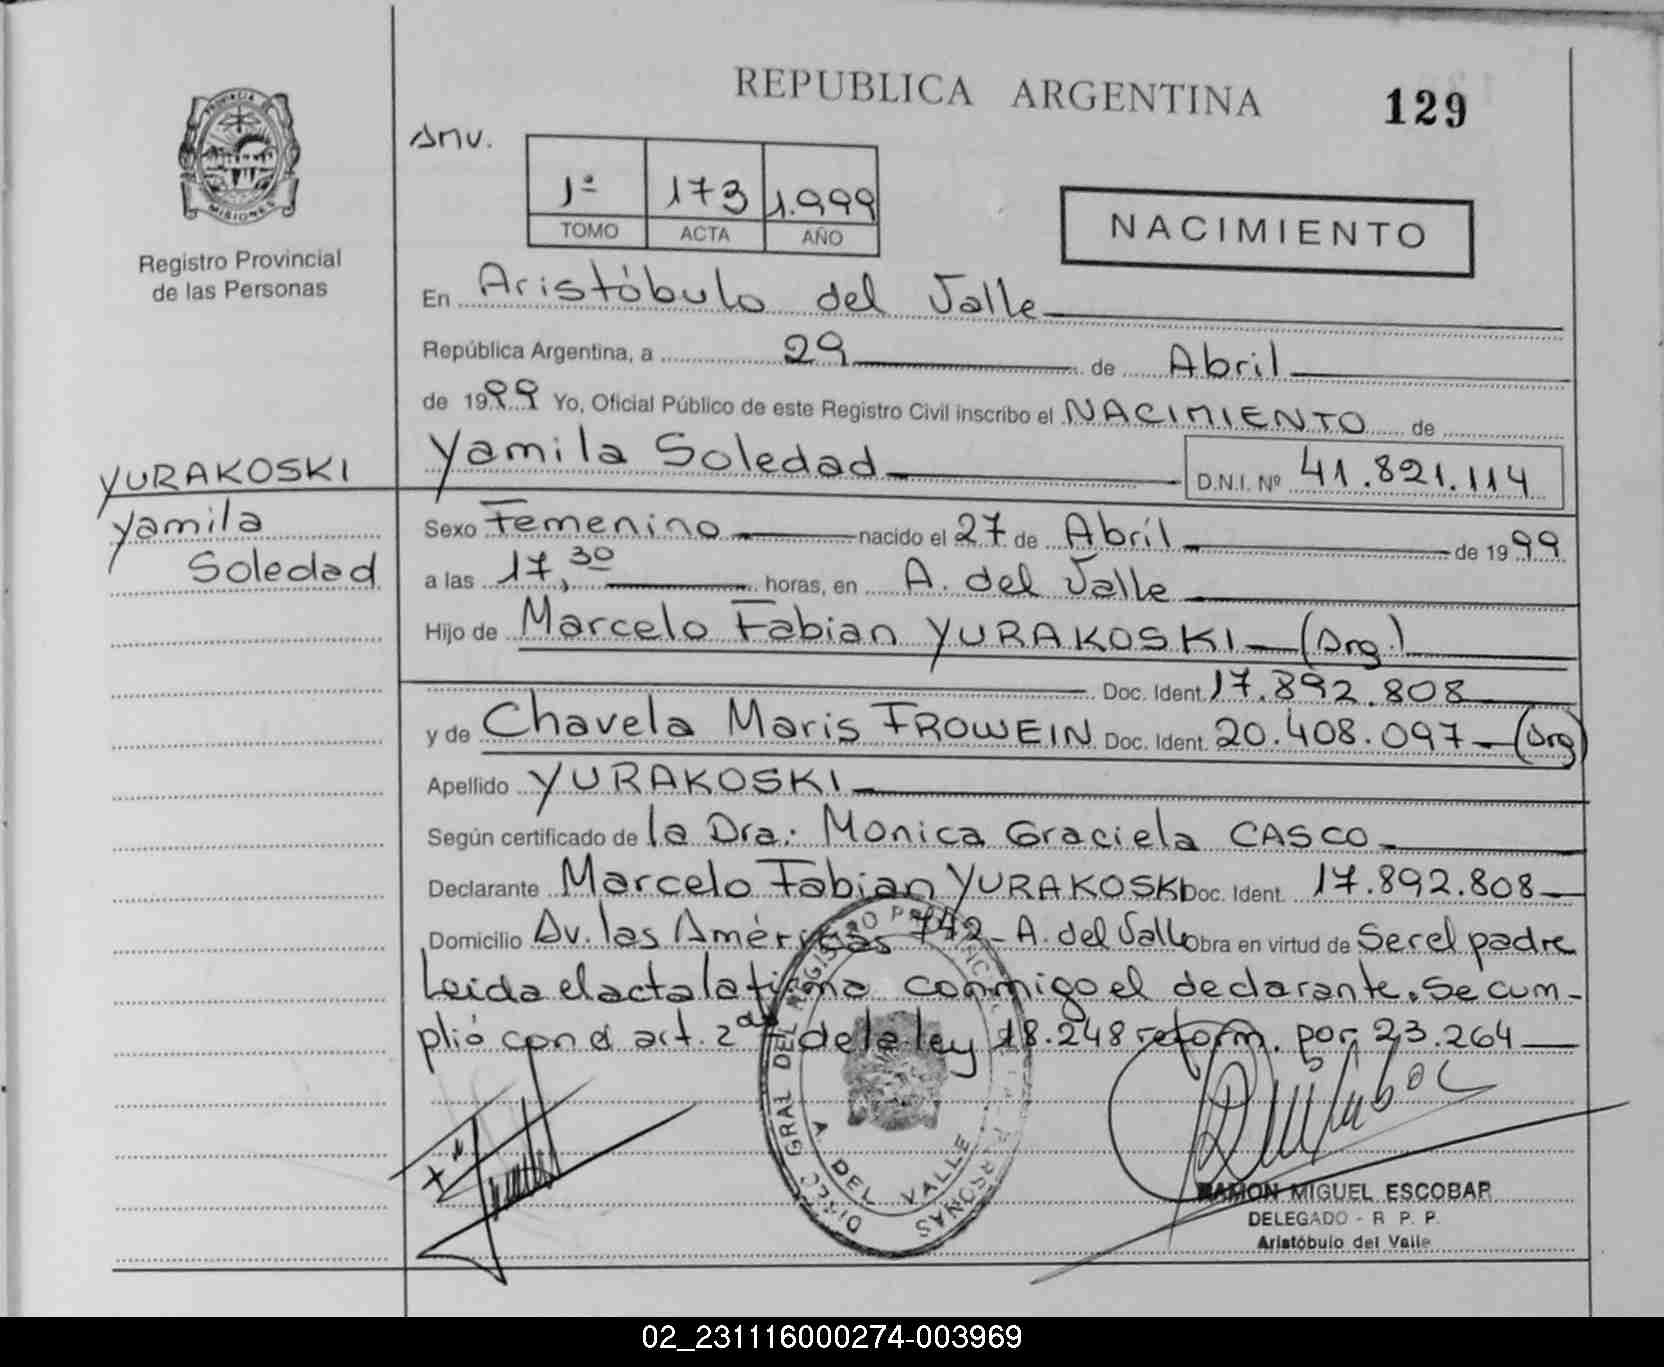 REPUBLICA ARGENTINA 129
PROVINCIA DE
MISIONES
Registro Provincial
de las Personas
Anv.
1º 173 1.999
TOMO ACTA AÑO
NACIMIENTO
En Aristóbulo del Valle
República Argentina, a 29 de Abril
de 1999 Yo, Oficial Público de este Registro Civil inscribo el NACIMIENTO de
Yamila Soledad D.N.I. Nº 41.821.114
YURAKOSKI
Yamila
Soledad
Sexo Femenino nacido el 27 de Abril de 1999
a las 17,30 horas, en A. del Valle
Hijo de Marcelo Fabian YURAKOSKI (Arg.)
Doc. Ident. 17.892.808
y de Chavela Maris FROWEIN Doc. Ident. 20.408.097 (Arg)
Apellido YURAKOSKI
Según certificado de la Dra: Monica Graciela CASCO
Declarante Marcelo Fabian YURAKOSKI Doc. Ident. 17.892.808
Domicilio Av. las Américas 742 - A. del Valle Obra en virtud de Ser el padre
Leida el acta la firma conmigo el declarante. Se cum-
plió con el art. 2do de la ley 18.248 reform. por 23.264
DIREC GRAL DEL REGISTRO PROVINCIAL DE LAS PERSONAS
A. DEL VALLE
RAMON MIGUEL ESCOBAR
DELEGADO - R. P. P.
Aristóbulo del Valle
02_231116000274-003969